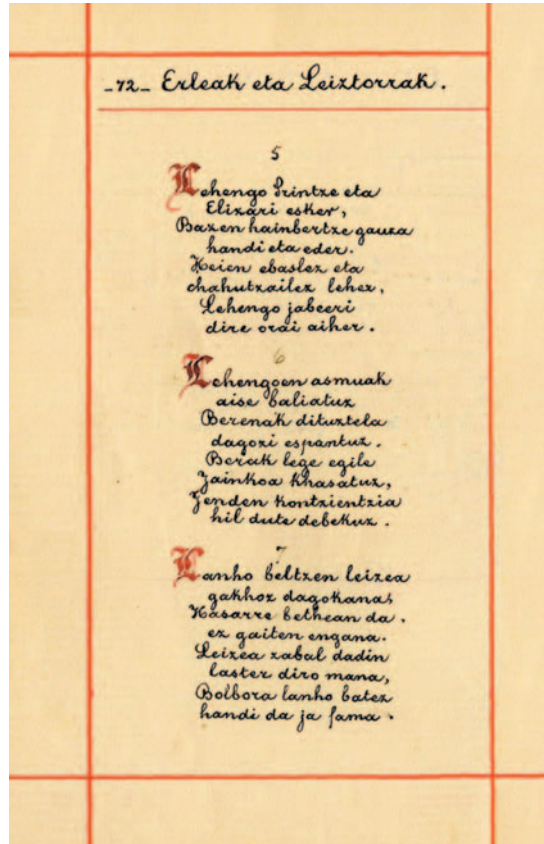 -72- Erleak eta Leiztorrak.
5
Lehengo Printze eta
Elizari esker,
Bazen hainbertze gauza
handi eta eder.
Heien ebaslez eta
chahutzailez lehez,
Lehengo jabeeri
dire orai aiher.
6
Lehengoen asmuak
aise baliatuz
Berenak dituztela
dagozi espantuz.
Berak lege egile
Jainkoa khasatuz,
Jenden kontzientzia
hil dute debekuz.
7
Lanho beltzen leizea
gakhoz dagokana,
Hasarre bethean da,
ez gaiten engana.
Leizea zabal dadin
laster diro mana,
Bolbora lanho batez
handi da ja fama.